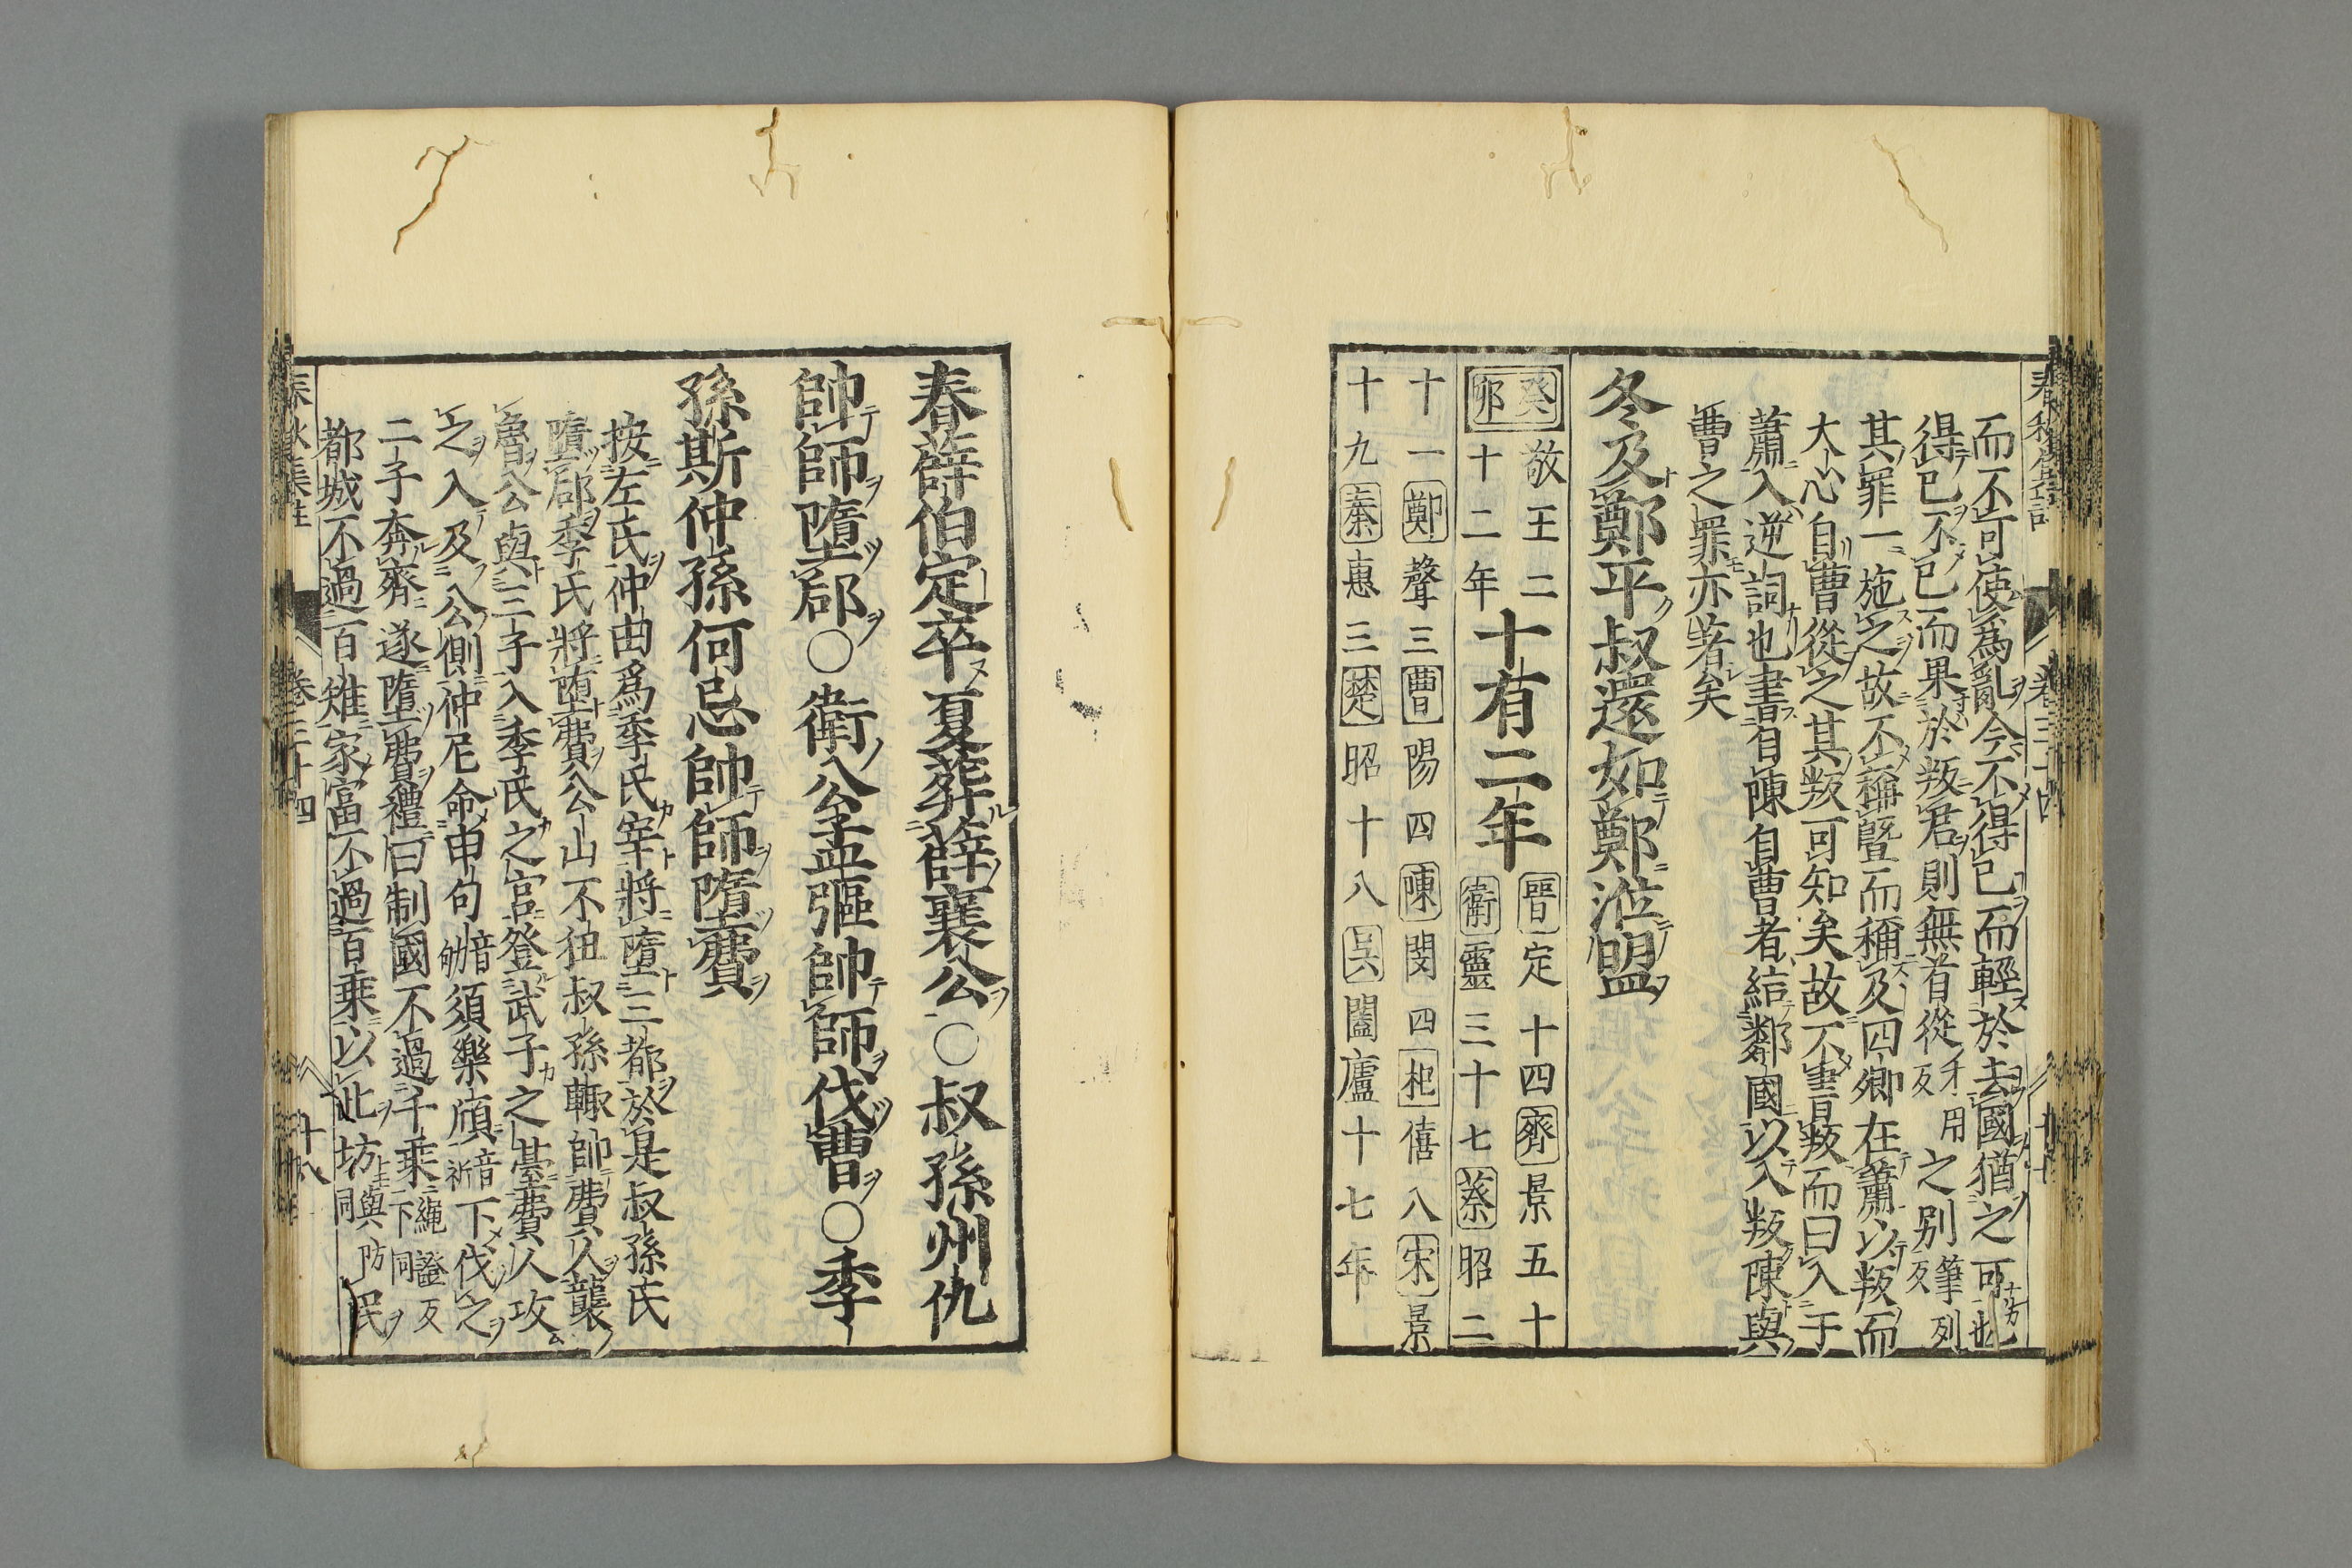 而不可使爲亂今不得已而輕於去國猶之可也
得已不已而果於叛君則無首從才用反之别筆列反
其罪一施之故不稱暨而稱及四卿在蕭以叛而
大心自曹從之其叛可知矣故不書叛而曰入于
蕭入逆詞也書自陳自曹者結鄰國以入叛陳與
曹之罪亦著矣
冬及鄭平叔還如鄭涖盟
癸卯敬王二十二年十有二年晉定十四齊景五十衛靈三十七蔡昭二
十一鄭聲三曹陽四陳閔四杞僖八宋景
十九秦惠三楚昭十八吳闔廬十七年
春薛伯定卒夏葬薛襄公○叔孫州仇
帥師墮郈○衛公孟彄帥師伐曹○季
孫斯仲孫何忌帥師墮費
按左氏仲由爲季氏宰將墮三都於是叔孫氏
墮郈季氏將墮費公山不狃叔孫輒帥費人襲
魯公與三子入季氏之宮登武子之臺費人攻
之入及公側仲尼命申句音劬須樂頎音祈下伐之
二子奔齊遂墮費禮曰制國不過千乘繩證反下同
都城不過百雉家富不過百乘以此坊與防同民
春秋集註 卷三十四 十八